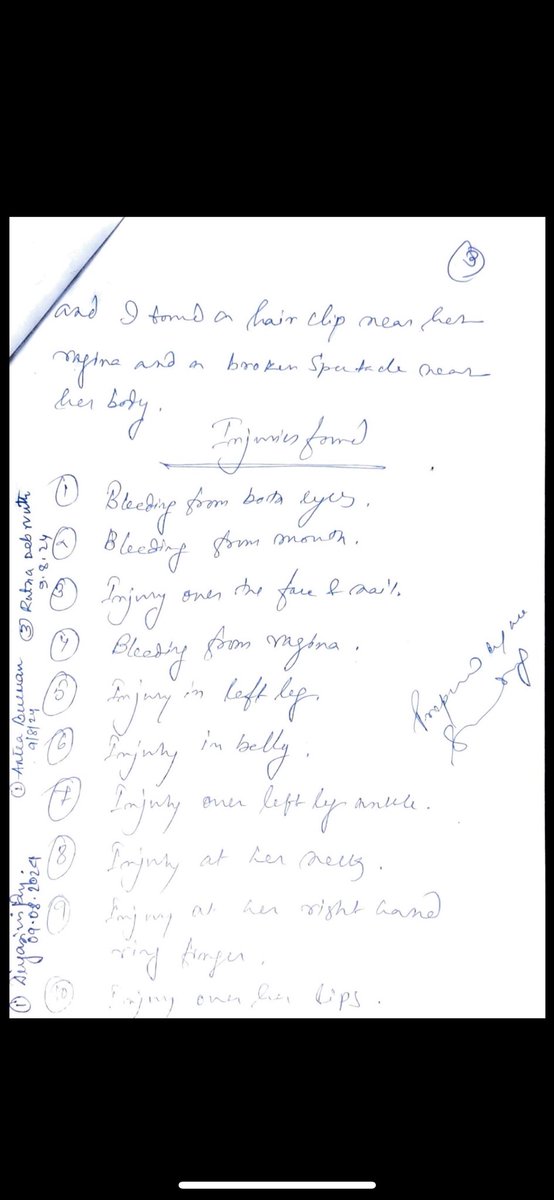 3
and I found a hair clip near her
vagina and a broken Spectacle near
her body.
Injuries found
1 Bleeding from both eyes.
2 Bleeding from mouth.
3 Injury over the face & nail.
4 Bleeding from vagina.
5 Injury in left leg.
6 Injury in belly.
7 Injury over left leg ankle.
8 Injury at her neck.
9 Injury at her right hand
ring finger.
10 Injury over her lips.
Prepared by me
3
9.8.24
9/8/24
1
09.08.2024